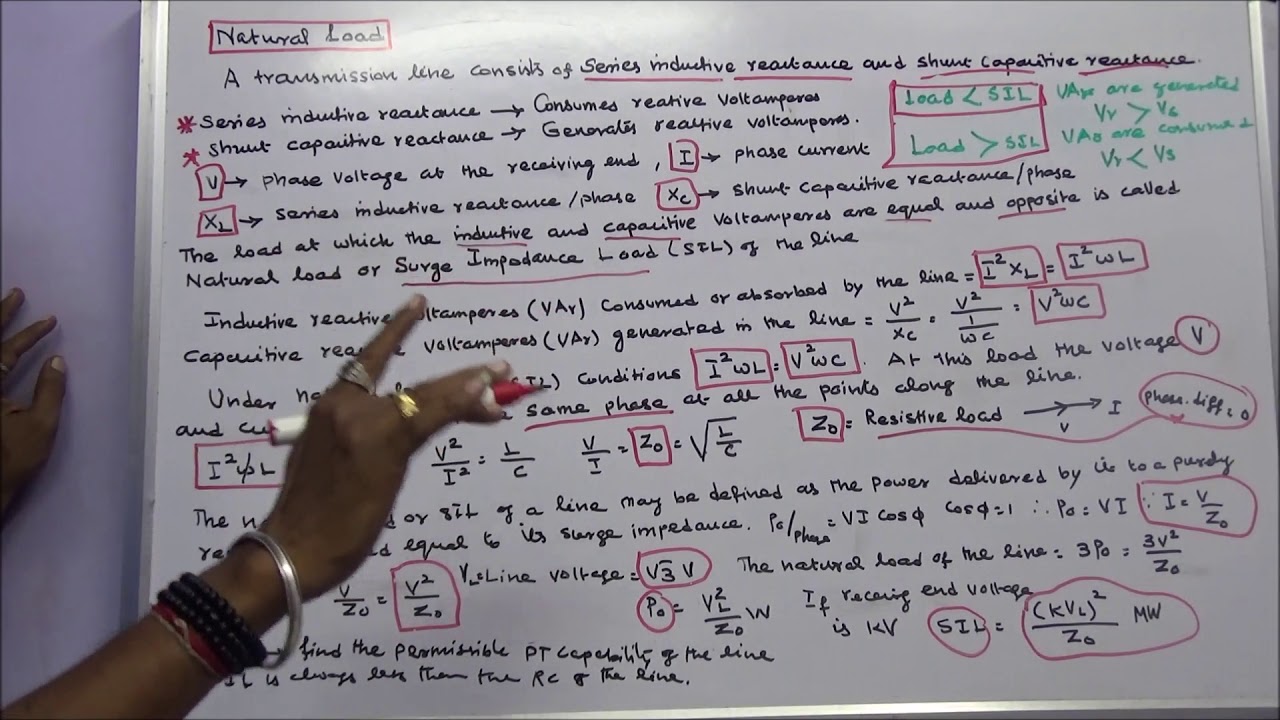 Natural Load
A transmission line consists of series inductive reactance and shunt capacitive reactance.
* Series inductive reactance → Consumes reative voltamperes
* Shunt capacitive reactance → Generates reactive voltamperes.
Load < SIL
VArs are generated
Vr > Vs
Load > SIL
VArs are consumed
Vr < Vs
V → phase voltage at the receiving end, I → phase current
XL → series inductive reactance/phase XC → shunt capacitive reactance/phase
The load at which the inductive and capacitive voltamperes are equal and opposite is called
Natural load or Surge Impedance Load (SIL) of the line
Inductive reactive voltamperes (VAr) consumed or absorbed by the line = I²XL = I²ωL
Capacitive voltamperes (VAr) generated in the line = V²/XC = V²/(1/ωC) = V²ωC
Under conditions I²ωL = V²ωC. At this load the voltage V
and same phase at all the points along the line.
I²ωL V²/I² = L/C V/I = Z0 = √(L/C) Z0 = Resistive load → V → I phase diff = 0
The or SIL of a line may be defined as the power delivered by it to a purely
equal to its surge impedance. P0/phase = VI cosφ cosφ=1 ∴ P0 = VI ∵ I = V/Z0
V/Z0 = V²/Z0 VL = Line voltage = √3 V The natural load of the line = 3P0 = 3V²/Z0
P0 = VL²/Z0 W If receing end voltage
is KV SIL = (KVL)²/Z0 MW
→ find the permissible PT capability of the line
is always less than the RC of the line.